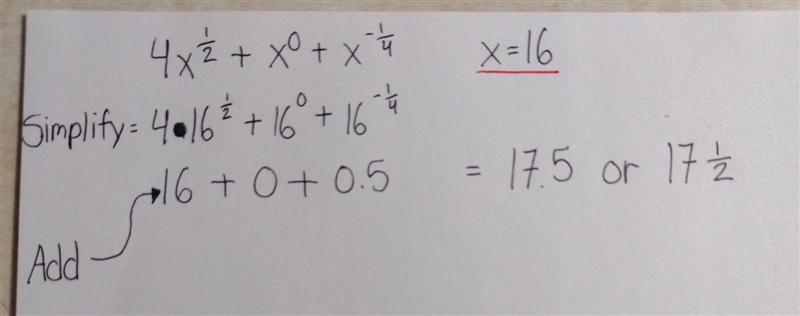 4x^½ + x^0 + x^-¼ x=16
Simplify = 4•16^½ + 16^0 + 16^-¼
16 + 0 + 0.5 = 17.5 or 17 ½
Add